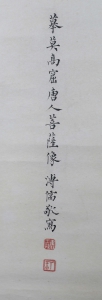 摹莫高窟唐人菩薩像溥儒敬寫